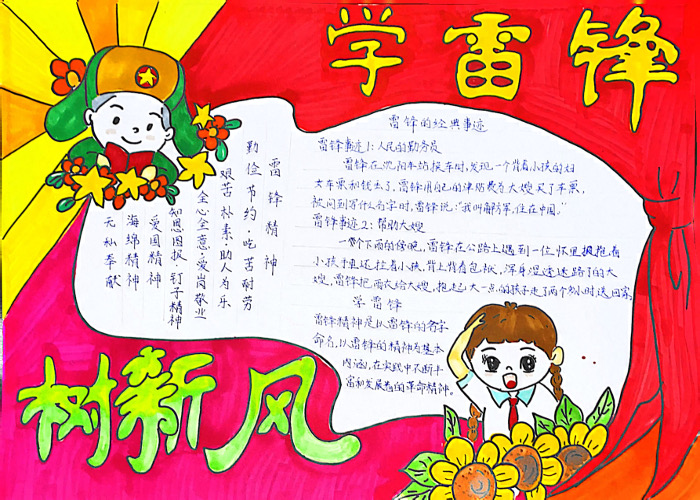 学雷锋
雷锋精神
勤俭节约·吃苦耐劳
艰苦朴素·助人为乐
全心全意·爱岗敬业
知恩图报 钉子精神
爱国精神
海绵精神
无私奉献
雷锋的经典事迹
雷锋事迹1:人民的勤务员
雷锋在沈阳车站换车时,发现一个背着小孩的妇
女车票和钱丢了,雷锋用自己的津贴费为大嫂买了车票,
被问到写什么名字时,雷锋说:"我叫解放军,住在中国。"
雷锋事迹2:帮助大嫂
一个下雨的傍晚,雷锋在公路上遇到一位怀里抱着
小孩手里还拉着小孩,背上背着包袱,浑身湿透迷路了的大
嫂,雷锋把雨衣给大嫂,抱起大一点的孩子走了两个多小时送回家
学雷锋
雷锋精神是以雷锋的名字
命名,以雷锋的精神为基本
内涵,在实践中不断丰
富和发展着的革命精神。
树新风